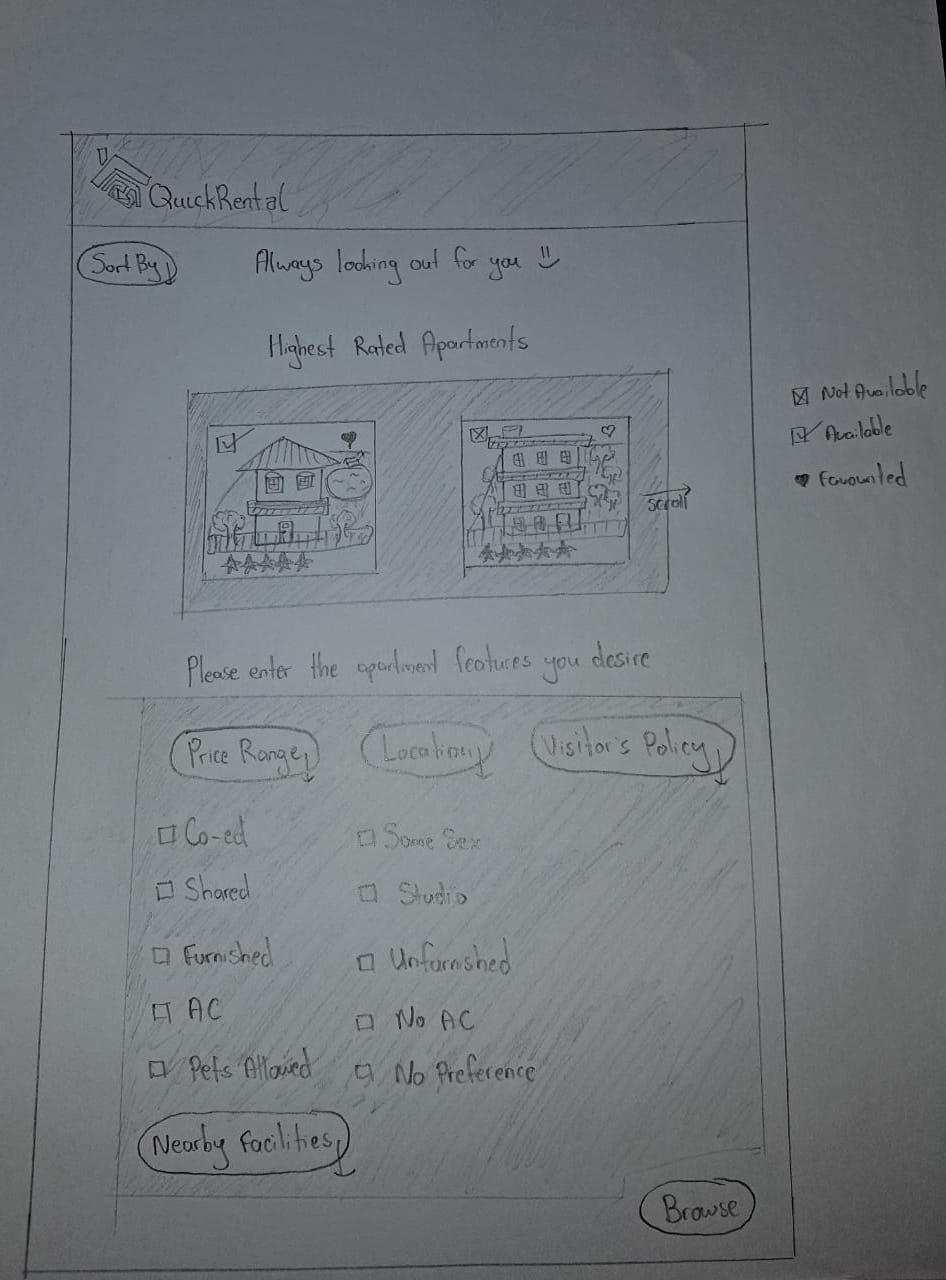 QuickRental
Sort By
Always looking out for you
Highest Rated Apartments
Not Available
Available
Favourited
scroll
Please enter the apartment features you desire
Price Range
Location
Visitor's Policy
Co-ed
Same Sex
Shared
Studio
Furnished
Unfurnished
AC
No AC
Pets Allowed
No Preference
Nearby Facilities
Browse